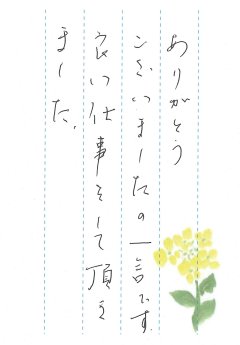 ありがとう
ございましたの一言です。
良い仕事をして頂き
ました。